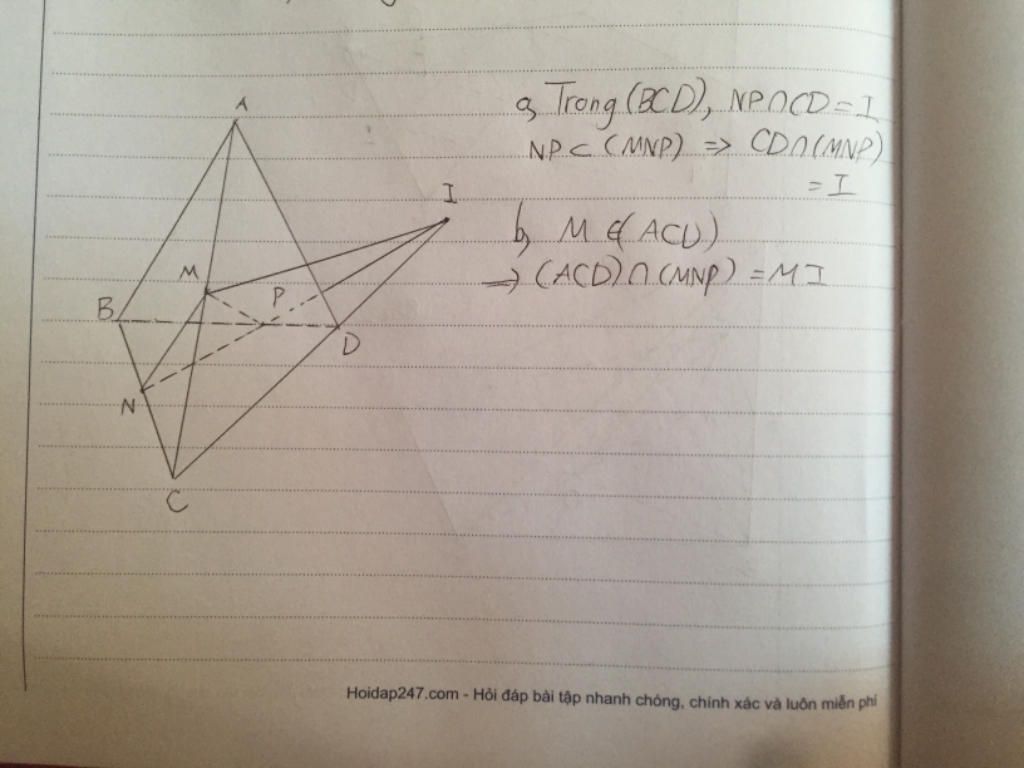 A
I
M
P
B
D
N
C
a, Trong (BCD), NP∩CD = I
NP ⊂ (MNP) ⇒ CD∩(MNP)
= I
b, M ∈ (ACD)
⇒ (ACD)∩(MNP) = MI
Hoidap247.com - Hỏi đáp bài tập nhanh chóng, chính xác và luôn miễn phí